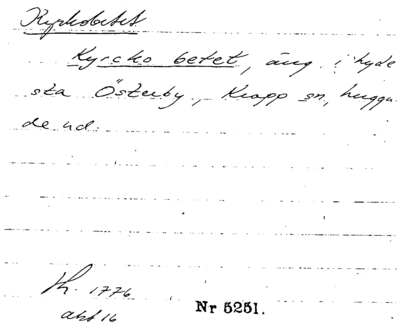 Kyrkobetet
Kyrcko betet, äng i hyde
sta Österby, Kropp sn, luggu
de hd.
Lh. 1776
akt 16
Nr 5251.